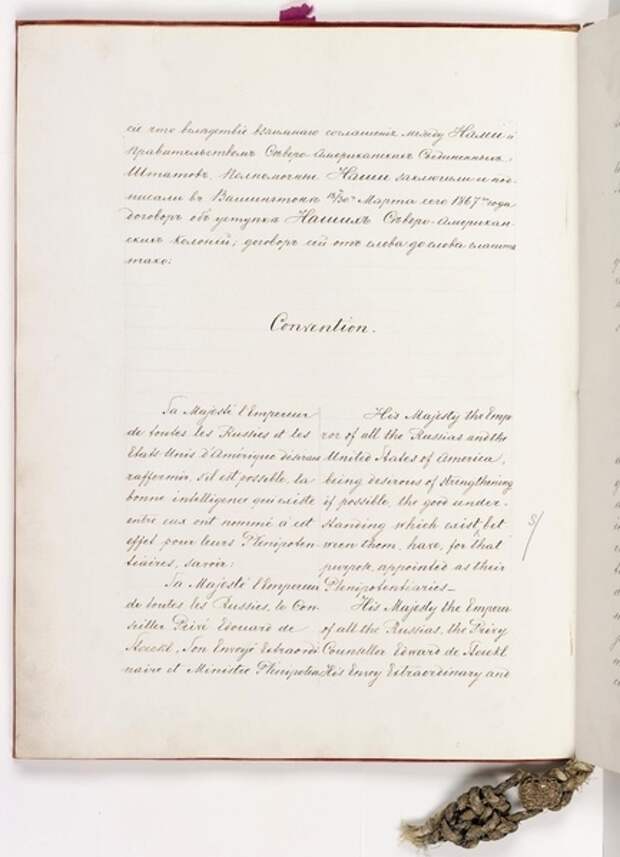 сіе что вслѣдствіе взаимнаго соглашенія между Нами и
Правительствомъ Сѣверо-Американскихъ Соединенныхъ
Штатовъ, Полномочные Наши заключили и под-
писали въ Вашингтонѣ 18/30го Марта сего 1867го года
договоръ объ уступкѣ Нашихъ Сѣверо-Американ-
скихъ Колоній; договоръ сей отъ слова до слова гласитъ
тако:
Convention.
Sa Majesté l'Empereur
de toutes les Russies et les
Etats Unis d'Amérique désirant
raffermir, s'il est possible, la
bonne intelligence qui existe
entre eux ont nommé à cet
effet pour leurs Plénipoten-
tiaires, savoir:
Sa Majesté l'Empereur
de toutes les Russies, le Con-
seiller Privé Edouard de
Stoeckl, Son Envoyé Extraordi-
naire et Ministre Plénipoten-
His Majesty the Empe-
ror of all the Russias and the
United States of America,
being desirous of strengthening
if possible, the good under-
standing which exist bet
ween them, have, for that
purpose, appointed as their
Plenipotentiaries—
His Majesty the Emperor
of all the Russias, the Privy
Counsellor Edward de Stoeckl
His Envoy Extraordinary and
s/